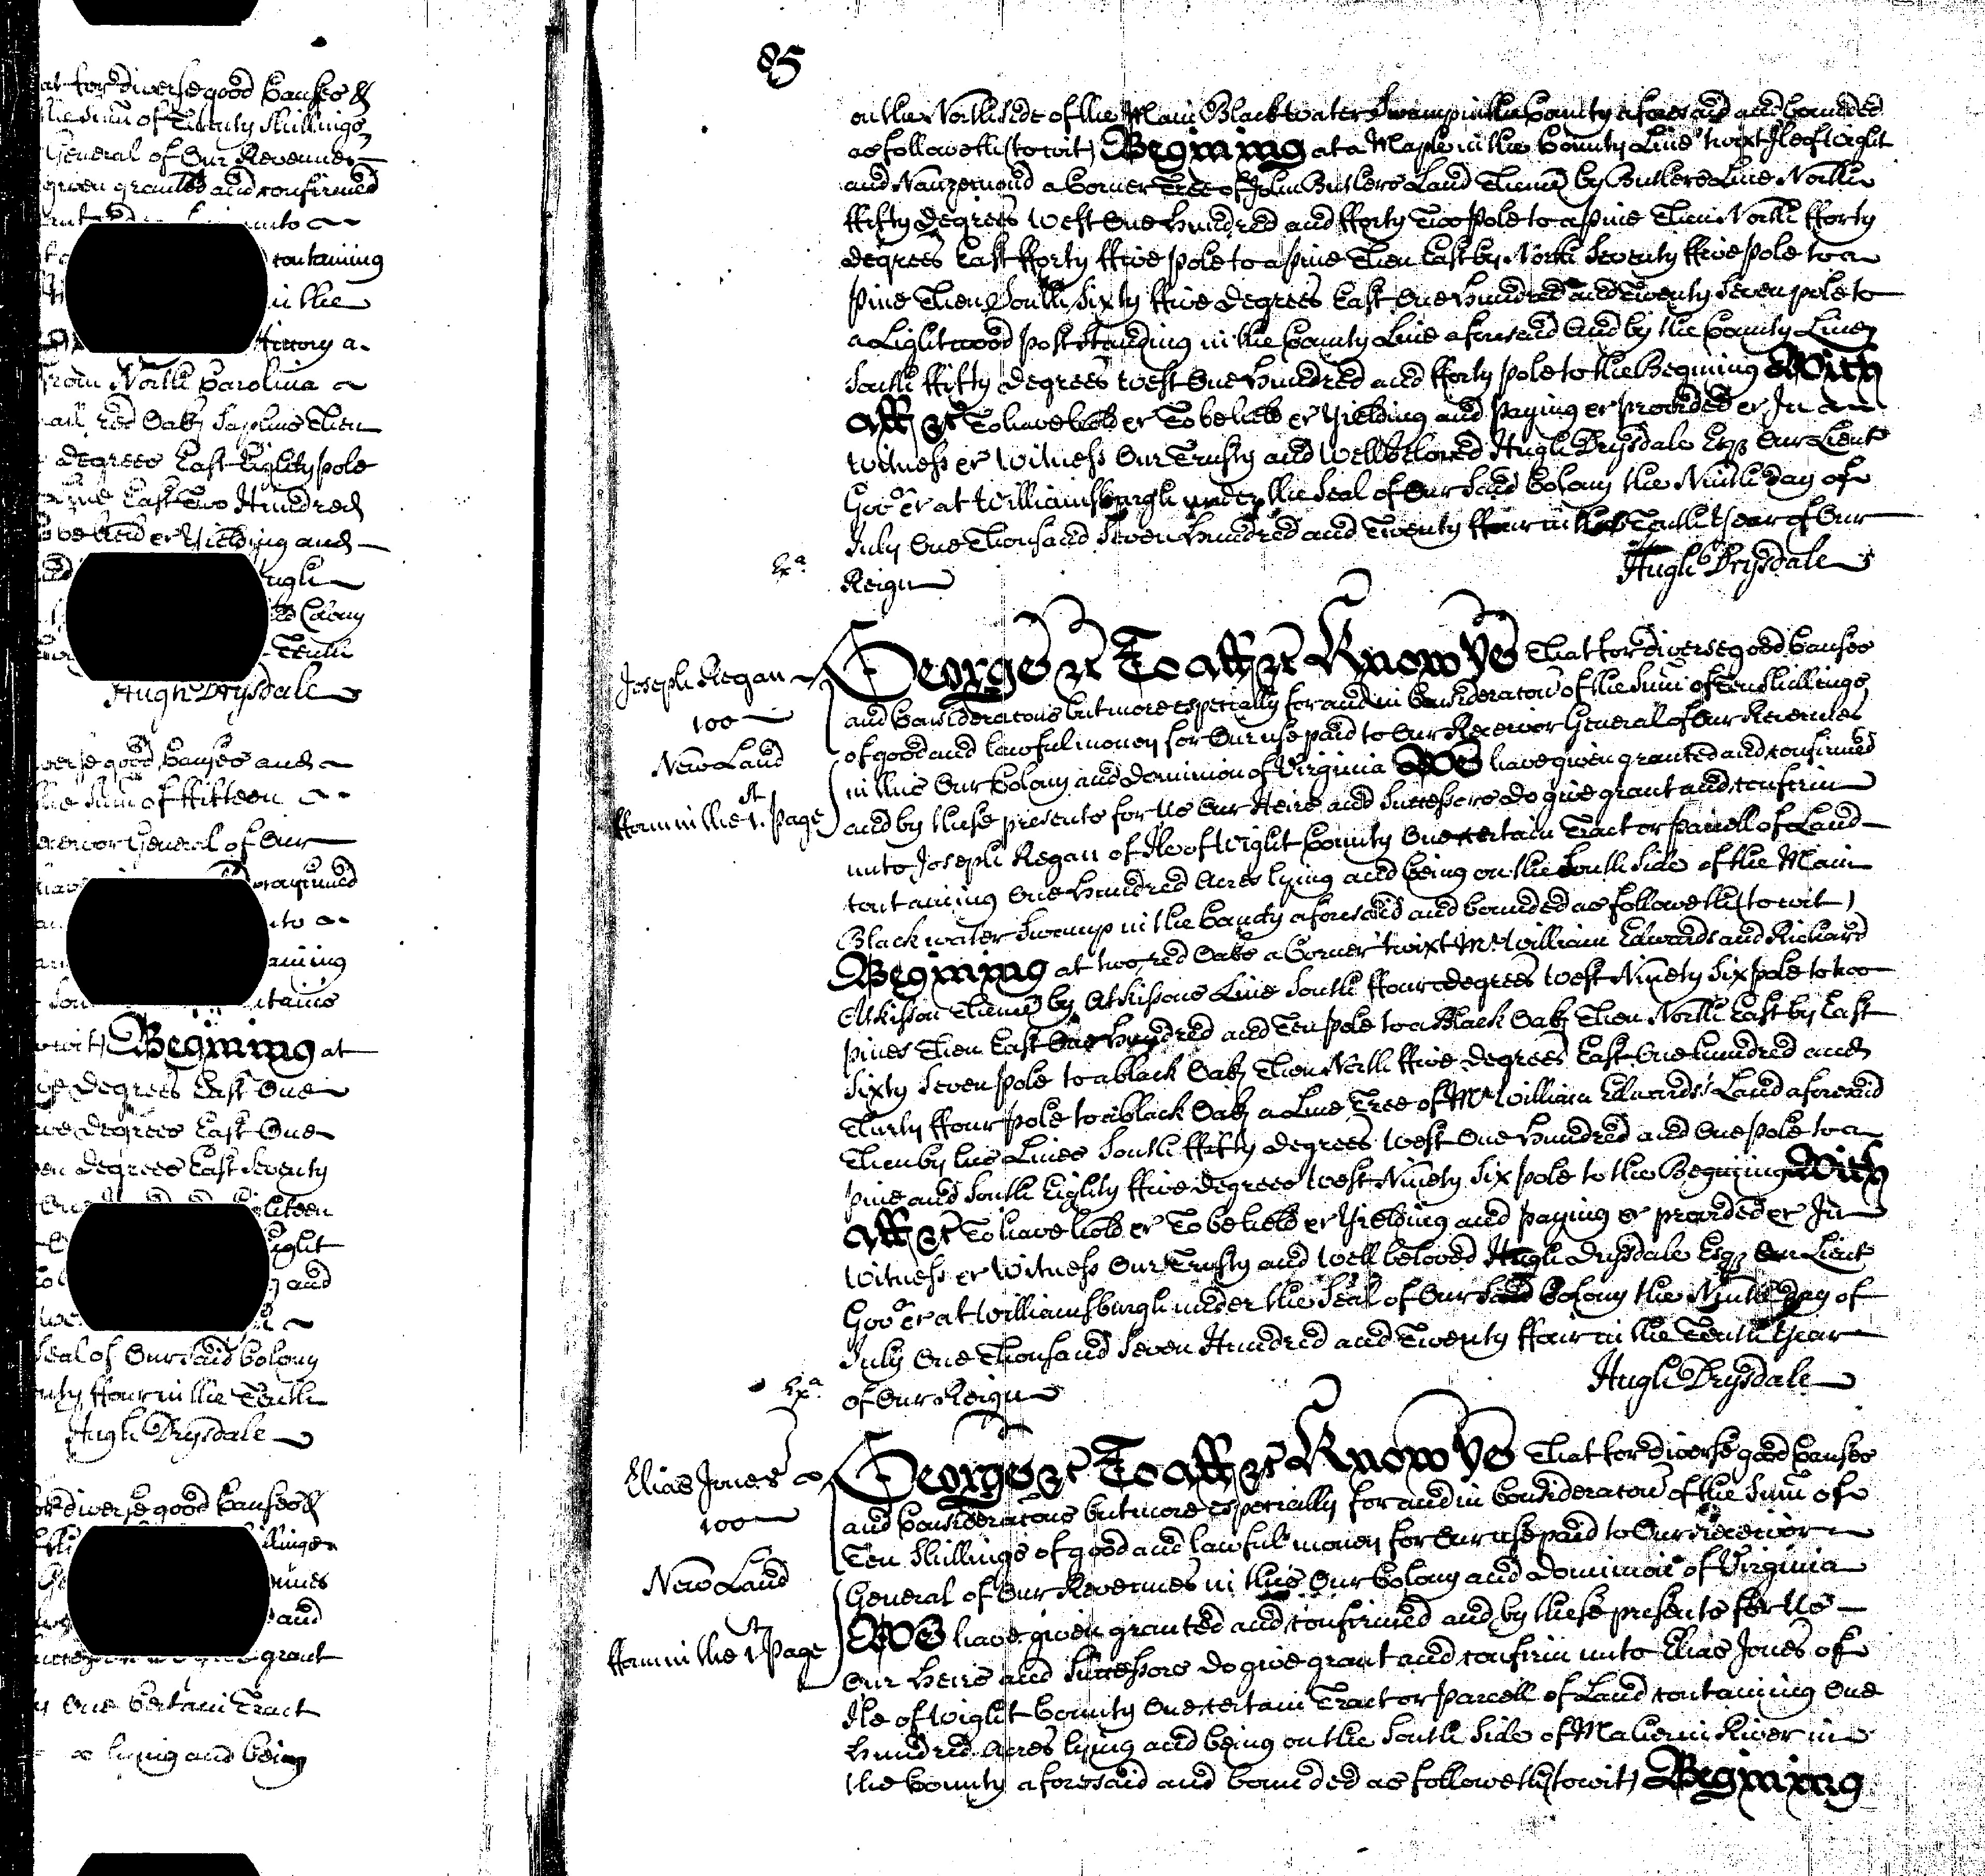 at for diverse good Causes &
the Sum of Twenty Shillings
General of Our Revenues
given granted and confirmed
unto
containing
in the
from North Carolina
red Oak Saplins Then
degrees East Eighty pole
East Two Hundred
to be held er Yielding and
Hugh
Colony
Tenth
Hugh Drysdale
good Causes and
the Sum of ffifteen
General of Our
wit) Begining at
degrees East One
degrees East One
degrees East Seventy
Eighteen
and
Seal of Our said Colony
ffour in the Tenth
Hugh Drysdale
diverse good Causes &
and
grant
One Certain Tract
lying and being
85
on the North side of the Main Blackwater Swamp in the County aforesaid and bounded
as followeth (to wit) Begining at a Maple in the County Line 'twixt Isle of Wight
and Nanzemond a Corner Tree of John Butlers Land Thence by Butlers Line North
ffifty degrees West One hundred and fforty Two pole to a pine Then North fforty
degrees East fforty ffive pole to a pine Then East by North Seventy ffive pole to a
pine Then South Sixty ffive degrees East One hundred and Twenty Seven pole to
a Lightwood post standing in the County Line aforesaid And by the County Line
South ffifty degrees West One hundred and fforty pole to the Begining With
All &c To have hold er To be held er Yielding and paying er provided er In
Witness er Witness Our Trusty and Wellbeloved Hugh Drysdale Esqr Our Lieut
Govr er at Williamsburgh under the Seal of Our Said Colony the Ninth day of
July One Thousand Seven hundred and Twenty ffour in the Tenth Year of Our
Exa. Reign
Hugh Drysdale
Joseph Regan
100
New Land
fform in the 1st Page
George &c To all &c Know Ye That for diverse good Causes
and Consideratons but more especially for and in Consideraton of the Sum of ten Shillings
of good and lawful money for Our use paid to Our Receivor General of Our Revenues
in this Our Colony and Dominion of Virginia We have given granted and confirmed
and by these presents for Us Our Heirs and Successors do give grant and confirm
unto Joseph Regan of Ile of Wight County One certain Tract or parcell of Land
containing One hundred Acres lying and being on the South Side of the Main
Blackwater Swamp in the County aforesaid and bounded as followeth (to wit)
Begining at two red Oaks a Corner 'twixt Mr William Edwards and Richard
Atkisson Thence by Atkissons Line South ffour degrees West Ninety Six pole to two
pines Then East One hundred and Ten pole to a Black Oak Then North East by East
Sixty Seven pole to a black Oak Then North ffive degrees East One hundred and
Thirty ffour pole to a black Oak a Line Tree of Mr William Edwards's Land aforesaid
Then by his Lines South ffifty degrees West One hundred and One pole to a
pine and South Eighty ffive degrees West Ninety Six pole to the Begining With
All &c To have hold er To be held er Yielding and paying er provided er In
Witness er Witness Our Trusty and Well beloved Hugh Drysdale Esqr Our Lieut
Govr er at Williamsburgh under the Seal of Our Said Colony the Ninth Day of
July One Thousand Seven Hundred and Twenty ffour in the Tenth Year
Exa. of Our Reign
Hugh Drysdale
Elias Jones
100
New Land
fform in the 1st Page
George &c To all &c Know Ye That for diverse good Causes
and Consideratons but more especially for and in Consideraton of the Sum of
Ten Shillings of good and lawful money for Our use paid to Our Receivor
General of Our Revenues in this Our Colony and Dominion of Virginia
We have given granted and confirmed and by these presents for Us
Our Heirs and Successors do give grant and confirm unto Elias Jones of
Ile of Wight County One certain Tract or parcell of Land containing One
hundred Acres lying and being on the South Side of Maherin River in
the County aforesaid and bounded as followeth (to wit) Begining